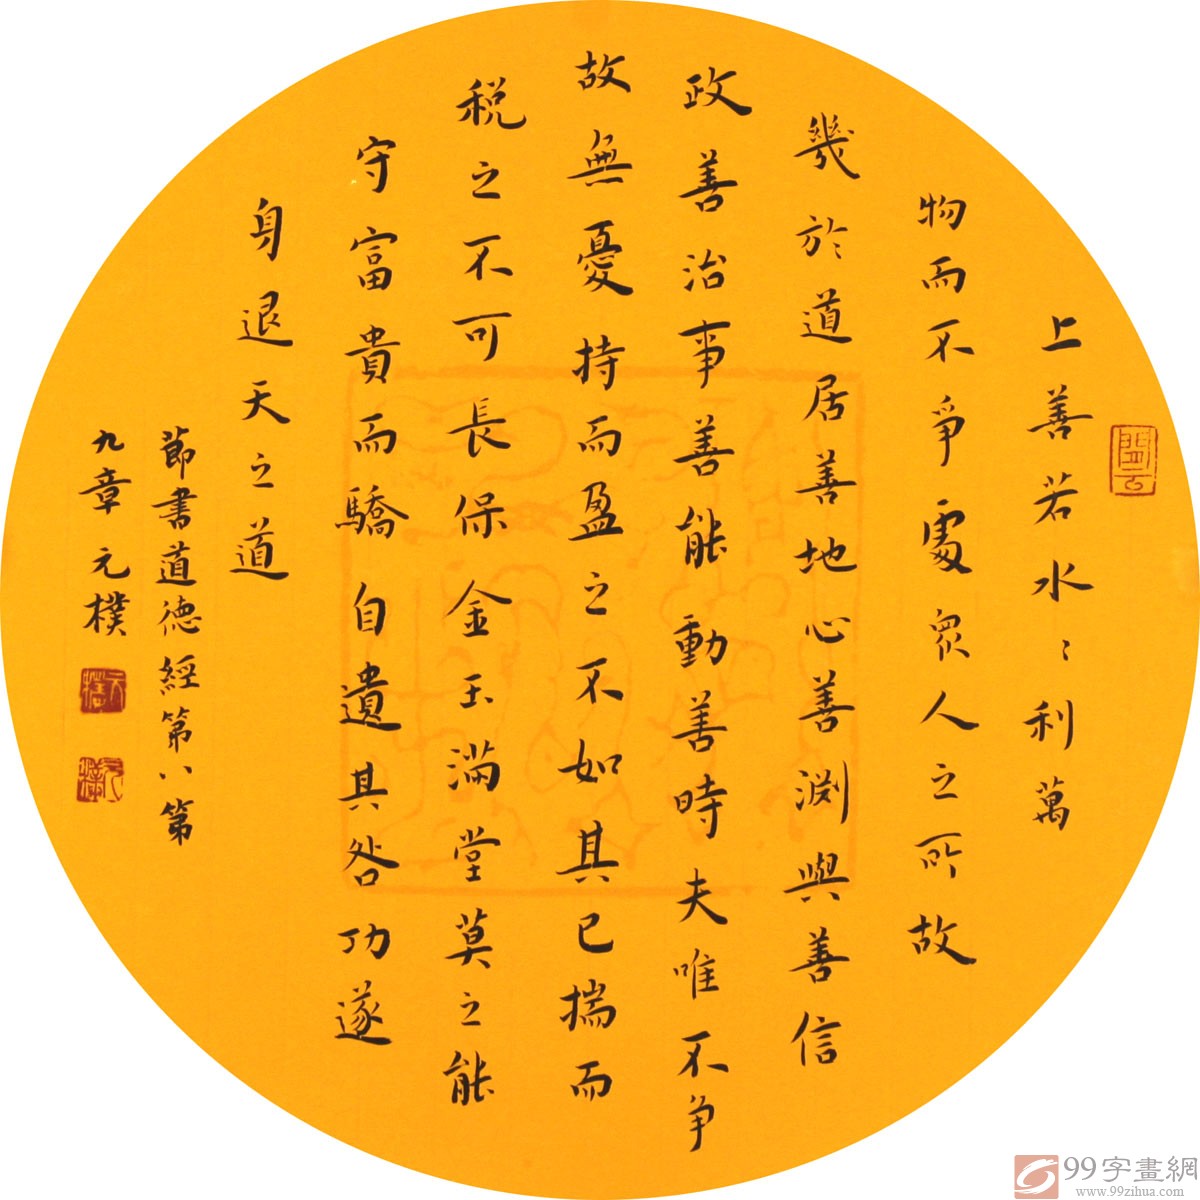 上善若水〻利萬
物而不爭處眾人之所故
幾於道居善地心善渊與善信
政善治事善能動善時夫唯不争
故無憂持而盈之不如其已揣而
税之不可長保金玉滿堂莫之能
守富貴而驕自遺其咎功遂
身退天之道
節書道德經第八第
九章元樸
元樸
99字畫網
www.99zihua.com